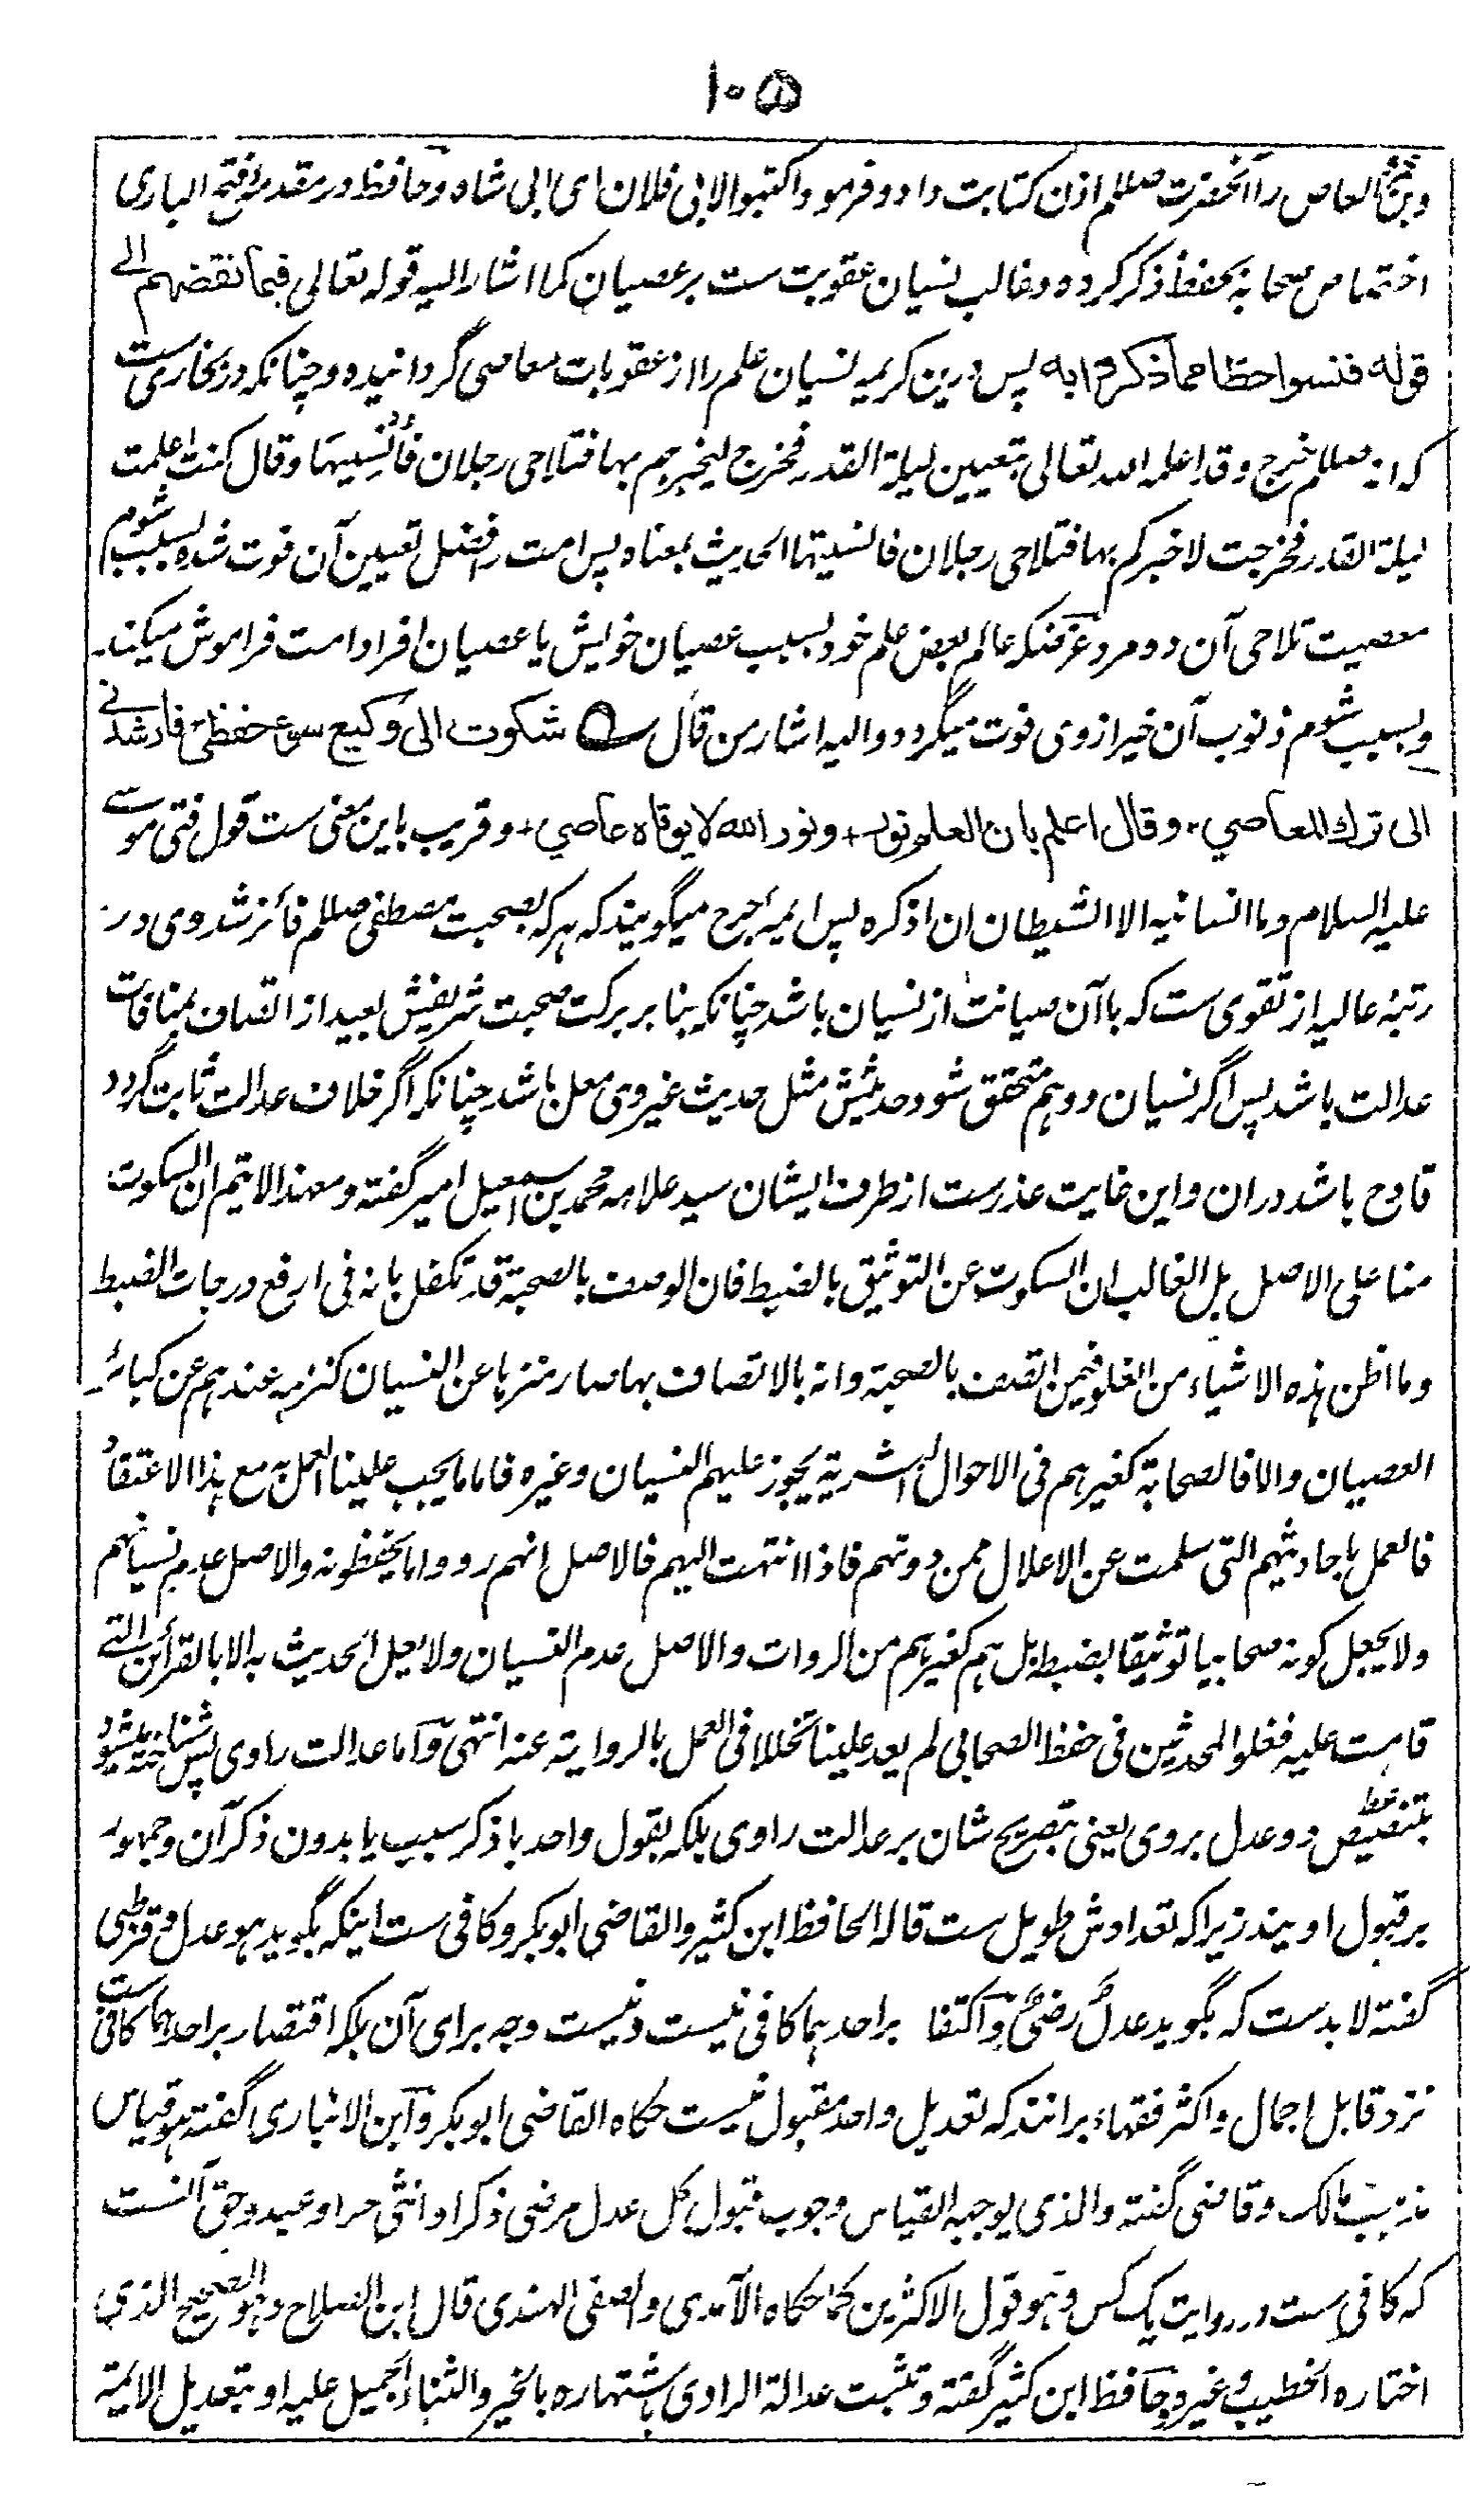 ۱۰۵
وبن العاص را آنحضرت صللم اذن کتابت داد و فرمود اکتبوا لابی فلان ای ابی شاه و حافظ در مقدمه فتح الباری
اختصاص صحابه بحفظ ذکر کرده و غالب نسیان عقوبت ست بر عصیان کما اشار الیه قوله تعالی فبما نقضهم الے
قوله فنسوا حظا مما ذکروا به پس درین کریمه نسیان علم را از عقوبات معاصی گردانیده و چنانکه در بخاری ست
که انه صللم خرج وقد اعلمه الله تعالی بتعیین لیلة القدر فخرج لیخبرهم بها فتلاحی رجلان فأُنسیها وقال کنت اعلمت
لیلة القدر فخرجت لاخبرکم بها فتلاحی رجلان فانسیتها الحدیث بمعناه پس امت را فضل تعیین آن فوت شده بسبب شوم
معصیت تلاحی آن دو مرد غرضکه عالم بعض علم خود بسبب عصیان خویش یا عصیان افراد امت فراموش میکند
و بسبب شوم ذنوب آن خیر از وی فوت میگردد والیه اشار من قال شکوت الی وکیع سوء حفظی فارشدنی
الی ترک المعاصي وقال اعلم بان العلم نور + ونور الله لا یوقاه عاصي + وقریب باین معنی ست قول فتی موسے
علیه السلام وما انسانیه الا الشیطان ان اذکره پس ایمه جرح میگویند که هرکه بصحبت مصطفی صللم فائز شد وی در
رتبهٔ عالیه از تقوی ست که باآن صیانت از نسیان باشد چنانکه بنا بر برکت صحبت شریفش بعید از اتصاف بمنافات
عدالت باشد پس اگر نسیان و وهم متحقق شود حدیثش مثل حدیث غیر وی معل باشد چنانکه اگر خلاف عدالت ثابت گردد
قادح باشد دران و این غایت عذرست از طرف ایشان سید علامه محمد بن اسمعیل امیر گفته ومعهذا لا یتم ان السکوت
منا علی الاصل بل الغالب ان السکوت عن التوثیق بالضبط فان الوصف بالصحبة قد تکفل بانه فی ارفع درجات الضبط
وما اظن هذه الاشیاء من الغلو فیمن اتصف بالصحبة وانه بالاتصاف بها صار منزها عن النسیان کنزهه عندهم عن کبائر
العصیان والا فالصحابة کغیرهم فی الاحوال البشریة یجوز علیهم النسیان وغیره فاما ما یجب علینا العمل به مع هذا الاعتقاد
فالعمل باحادیثهم التی سلمت عن الاعلال ممن دونهم فاذا انتهت الیهم فالاصل انهم رووا ما یحفظونه والاصل عدم نسیانهم
ولا یجعل کونه صحابیا توثیقا بضبطه بل هم کغیرهم من الروات والاصل عدم النسیان ولا یعل الحدیث به الا بالقرائن التے
قامت علیه فغلو المحدثین فی حفظ الصحابی لم یعد علینا تخللا فی العمل بالروایة عنه انتهی و اما عدالت راوی پس شناخته میشود
بتنصیص دو عدل بروی یعنی بتصریح شان بر عدالت راوی بلکه بقول واحد با ذکر سبب یا بدون ذکر آن وجمهور
بر قبول او یند زیرا که تعدادش طویل ست قاله الحافظ ابن کثیر والقاضی ابوبکر و کافی ست اینکه بگوید هو عدل و قرطبی
گفته لابدست که بگوید عدلٌ رضیٌ و اکتفا براحدهما کافی نیست و نیست وجه برای آن بلکه اقتصار براحدهما کافی ست
نزد قابل اجمال و اکثر فقهاء برانند که تعدیل واحد مقبول نیست حکاه القاضی ابوبکر و ابن الانباری گفته هو قیاس
مذهب مالک و قاضی گفته والذی یوجبه القیاس وجوب قبول کل عدل مرضی ذکر او انثی حر او عبد و حق آنست
که کافی ست در روایت یک کس وهو قول الاکثرین کما حکاه الآمدی والصفی الهندی قال ابن الصلاح وهو الصحیح الذی
اختاره الخطیب وغیره و حافظ ابن کثیر گفته وتثبت عدالة الراوی باشتهاره بالخیر والثناء الجمیل علیه او بتعدیل الایمة